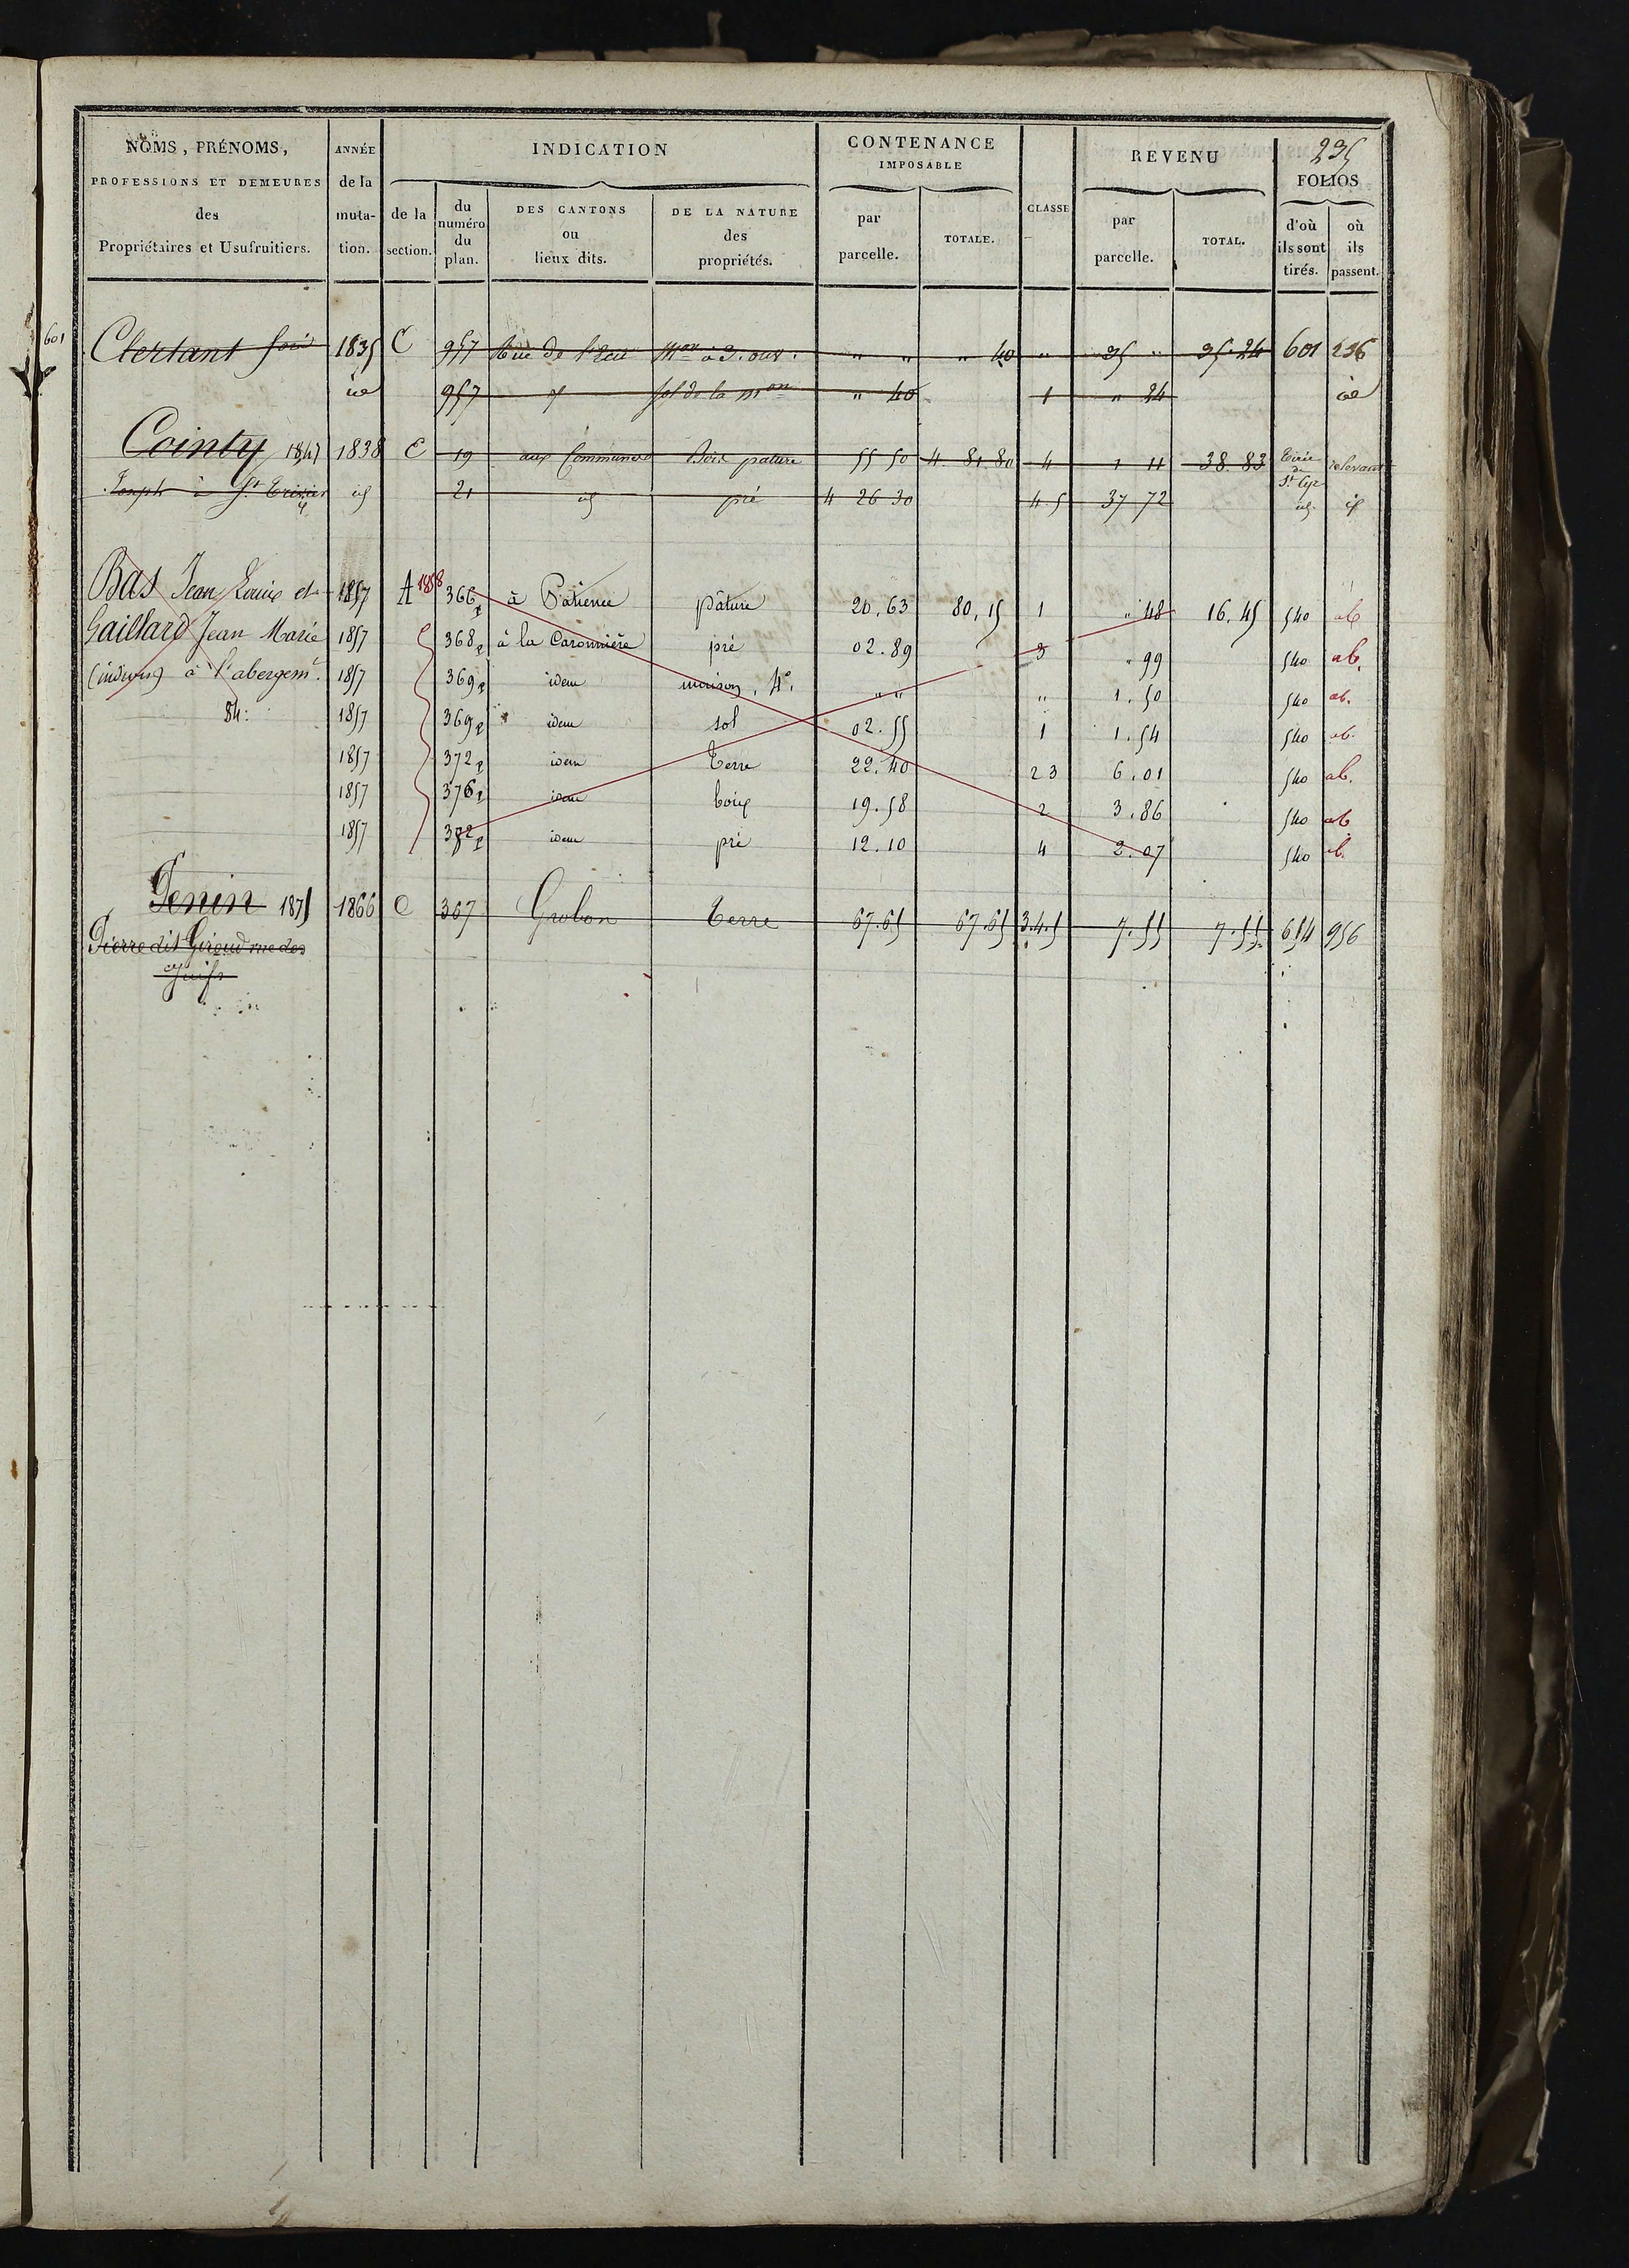 235
NOMS, PRÉNOMS, PROFESSIONS ET DEMEURES des Propriétaires et Usufruitiers. ANNÉE de la mutation. INDICATION de la section. du numéro du plan. DES CANTONS ou lieux dits. DE LA NATURE des propriétés. CONTENANCE IMPOSABLE par parcelle. TOTALE. CLASSE REVENU par parcelle. TOTAL. FOLIOS d'où ils sont tirés. où ils passent.
601 Clertant 1835 C 957 Rue de l'Ecu " " " 40 " 35 " 35.24 601 236
id 957 id sol de la mon " 40 1 " 24 id
Cointy 1847 1838 C 19 aux Communes Bois pature 55 50 4. 81. 80 4 1 11 38. 83 St Cyr
Joseph à St id 21 id pré 4 26 30 4.5 37 72 id id
Bas Jean Louis et 1857 A 1858 366p à Patience pâture 20.63 80,15 1 " 48 16.45 540 ab
Gaillard Jean Marie 1857 368p à la Caronnière pré 02.89 3 " 99 540 ab.
(indivis) à l'abergemt. 1857 369p idem maison, 4e. " " " 1.50 540 ab.
84: 1857 369p idem sol 02.55 1 1.54 540 ab.
1857 372p idem Terre 22.40 2 3 6.01 540 ab.
1857 376p idem bois 19.58 2 3.86 540 ab
1857 382p idem pré 12.10 4 2.07 540 ab.
Penin 1871 1866 C 307 Grobon Terre 67.65 67.65 3.4.5 7.55 7.55 654 956
Pierre dit Giroud rue des
Juifs